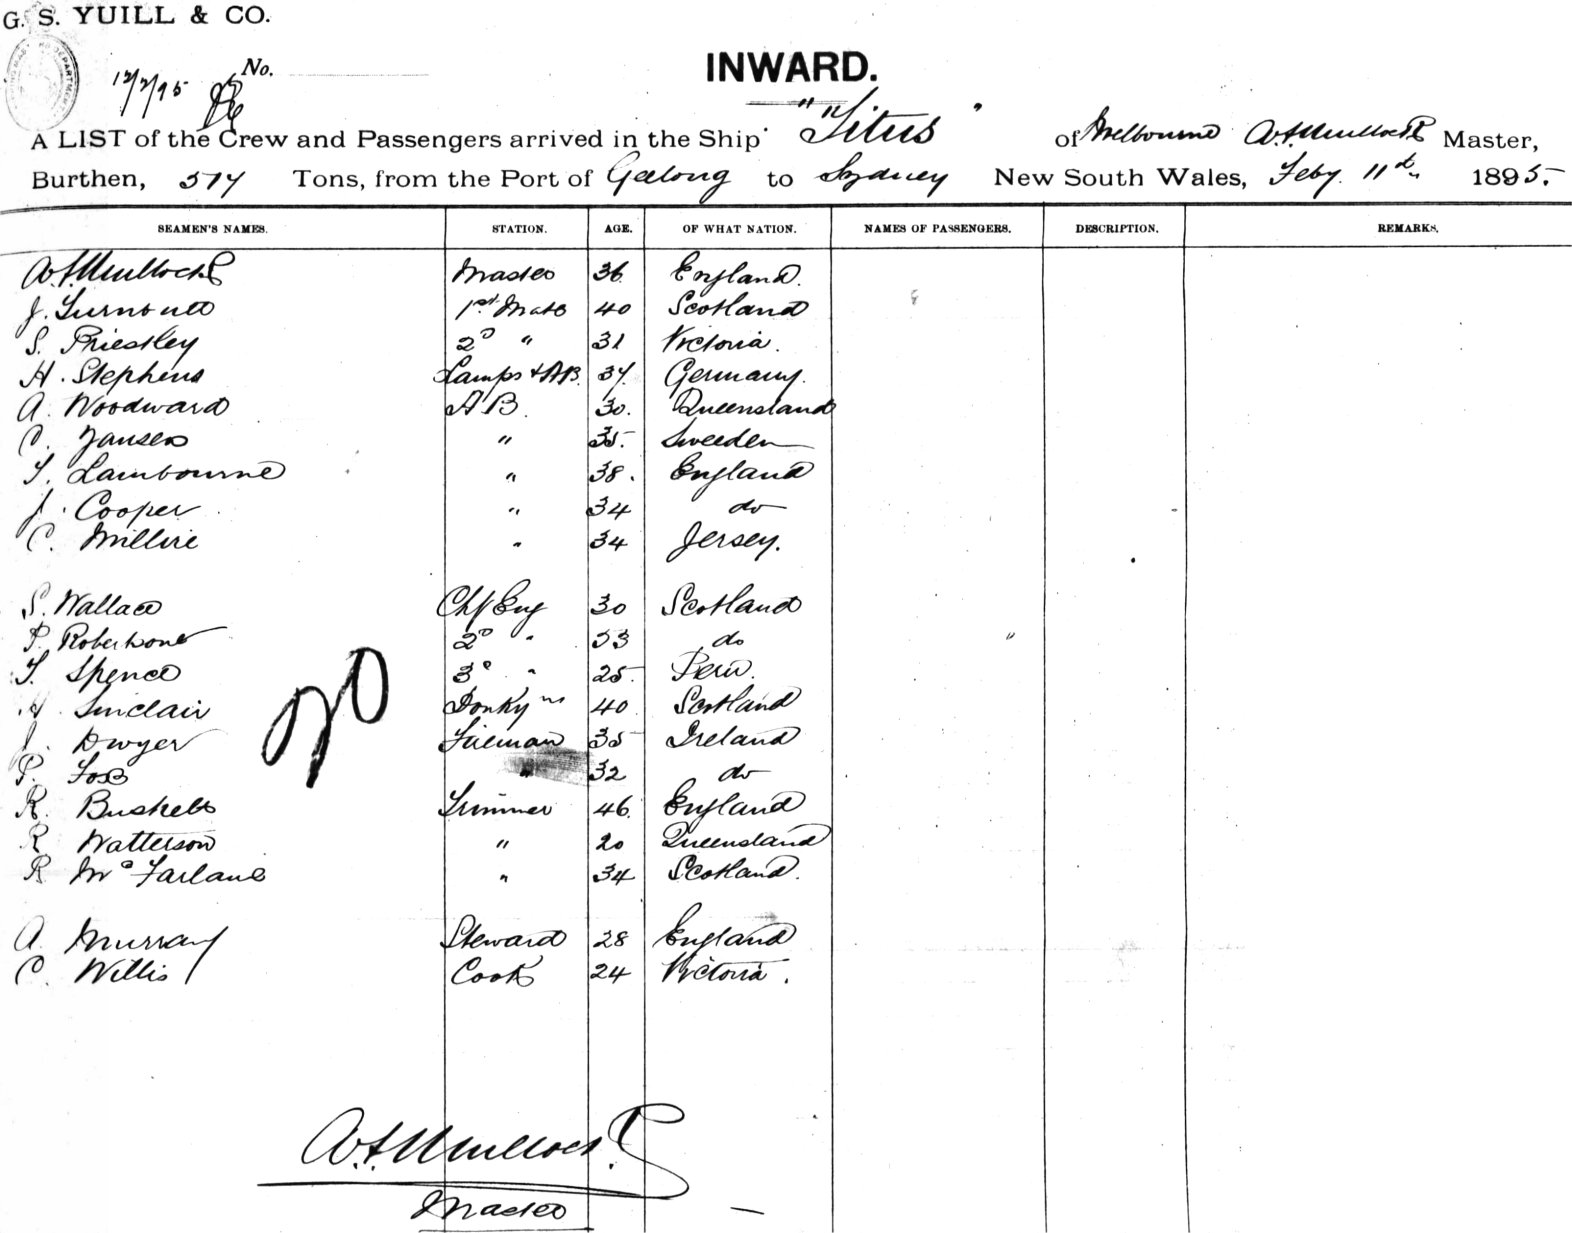 G. S. YUILL & CO.
12/2/95 No.
INWARD.
A LIST of the Crew and Passengers arrived in the Ship "Titus" of Melbourne W. F. Mullock Master,
Burthen, 514 Tons, from the Port of Geelong to Sydney New South Wales, Feby. 11th 1895.
SEAMEN'S NAMES. STATION. AGE. OF WHAT NATION. NAMES OF PASSENGERS. DESCRIPTION. REMARKS.
Mullock Master 36 England.
J. Turnbull 1st Mate 40 Scotland
S. Priestley 2D " 31 Victoria.
H. Stephens Lamps + AB. 37. Germany.
A. Woodward AB. 30. Queensland
C. Jansen " 35. Sweeden
T. Lambourne " 38. England
J. Cooper " 34 do
C. Millire " 34 Jersey.
S. Wallace Chf Eng 30 Scotland
P. Robertson 2D " 33 do
T. Spence 3D " 25. Peru.
H. Sinclair Donkyms 40 Scotland
J. Dwyer Fireman 35 Ireland
P. Fox " 32 do
R. Buskell Trimmer 46. England
R Watterson " 20 Queensland
R McFarlane " 34 Scotland.
20
A. Murray Steward 28 England
C. Willis Cook 24 Victoria.
Mullock
Master